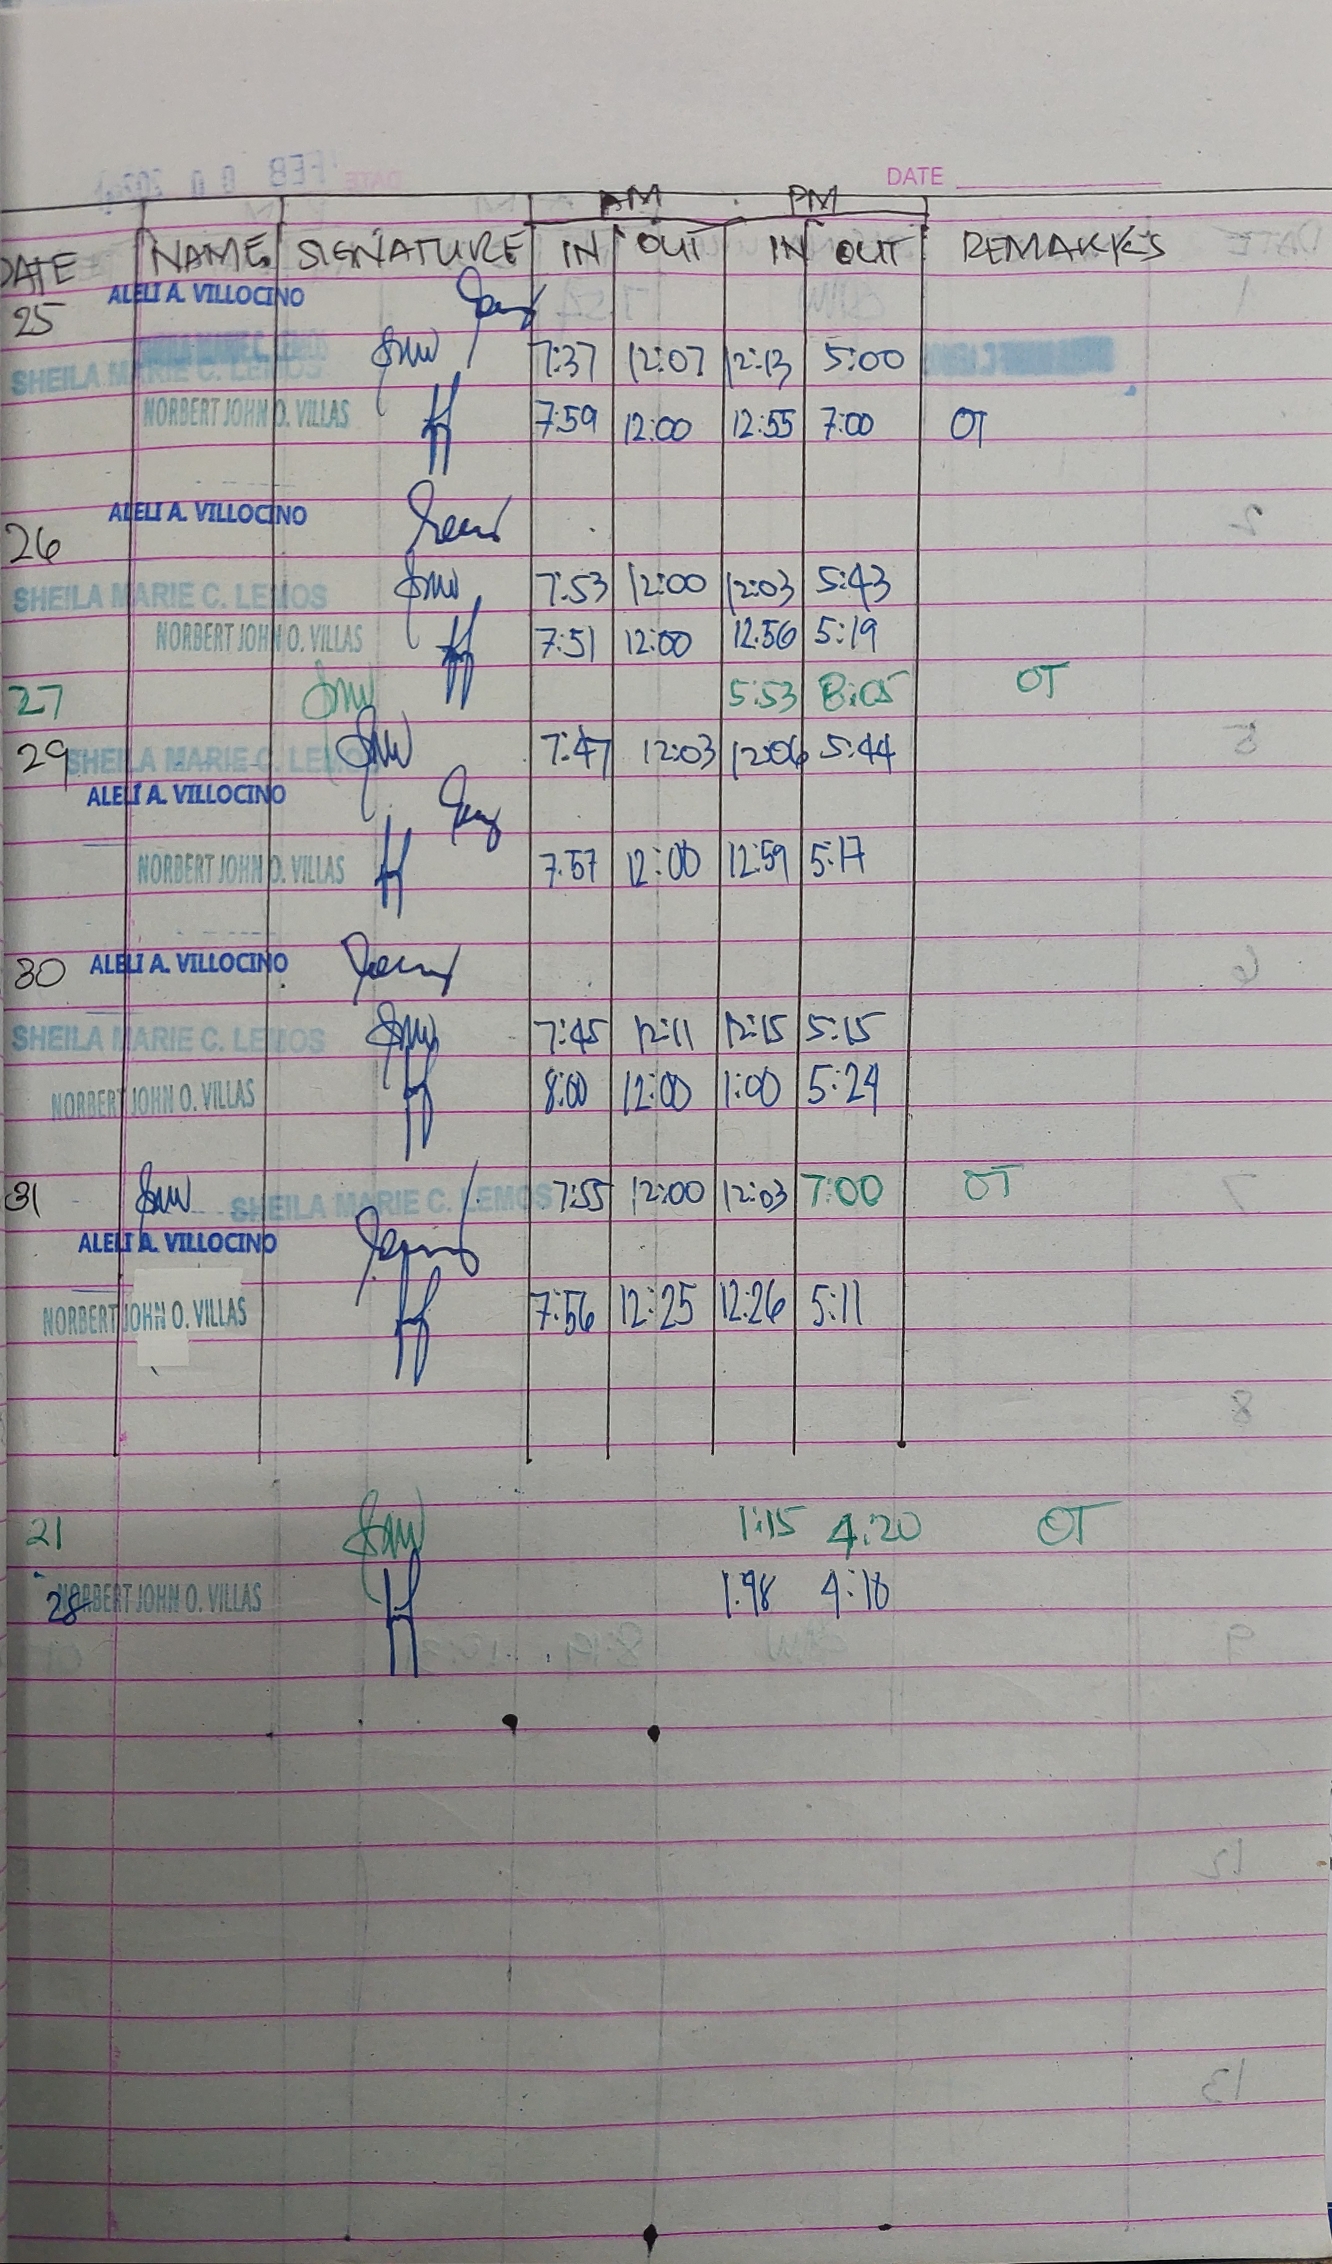 DATE
AM PM
DATE NAME SIGNATURE IN OUT IN OUT REMARKS
25 ALELI A. VILLOCINO
SHEILA MARIE C. LEMOS 7:37 12:07 12:13 5:00
NORBERT JOHN O. VILLAS 7:59 12:00 12:55 7:00 OT
26 ALELI A. VILLOCINO
SHEILA MARIE C. LEMOS 7:53 12:00 12:03 5:43
NORBERT JOHN O. VILLAS 7:51 12:00 12:56 5:19
27 5:53 8:05 OT
29 SHEILA MARIE C. LEMOS 7:47 12:03 12:06 5:44
ALELI A. VILLOCINO
NORBERT JOHN O. VILLAS 7:57 12:00 12:59 5:17
30 ALELI A. VILLOCINO
SHEILA MARIE C. LEMOS 7:45 12:11 12:15 5:15
NORBERT JOHN O. VILLAS 8:00 12:00 1:00 5:24
31 SHEILA MARIE C. LEMOS 7:55 12:00 12:03 7:00 OT
ALELI A. VILLOCINO
NORBERT JOHN O. VILLAS 7:56 12:25 12:26 5:11
21 1:15 4:20 OT
28 NORBERT JOHN O. VILLAS 4:18